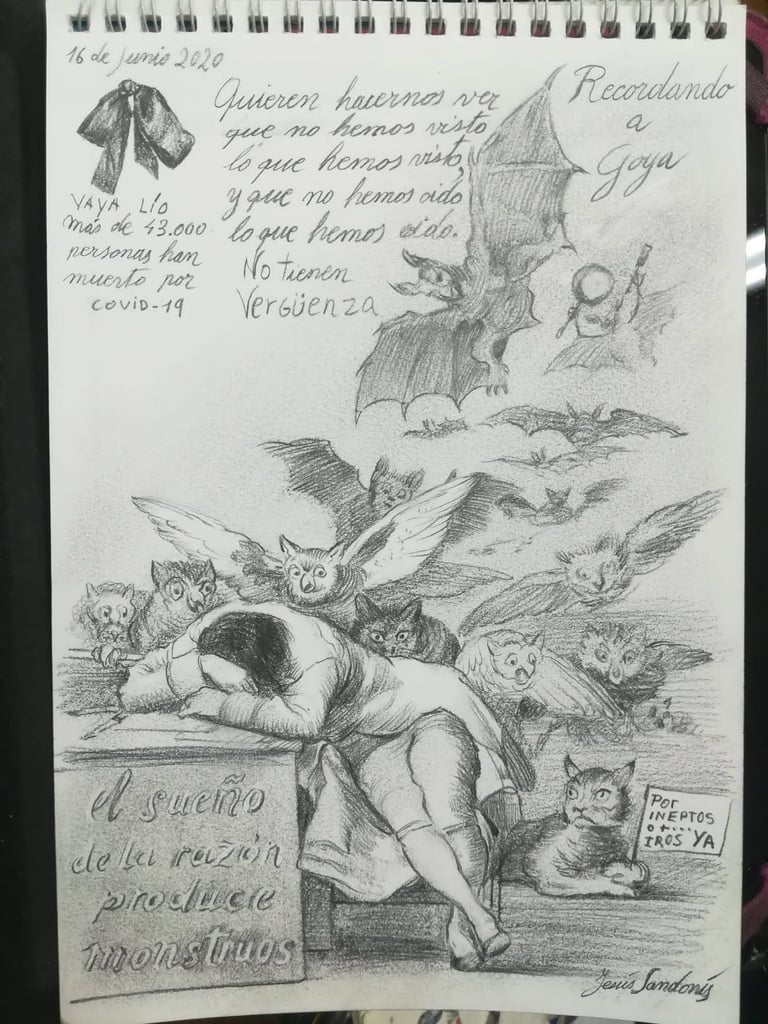 16 de Junio 2020
VAYA LÍO
más de 43.000
personas han
muerto por
COVID-19
Quieren hacernos ver
que no hemos visto
lo que hemos visto,
y que no hemos oido
lo que hemos oido.
No tienen
Vergüenza
Recordando
a
Goya
El sueño
de la razón
produce
monstruos
Por
INEPTOS
o +....
IROS YA
Jesús Sandonís